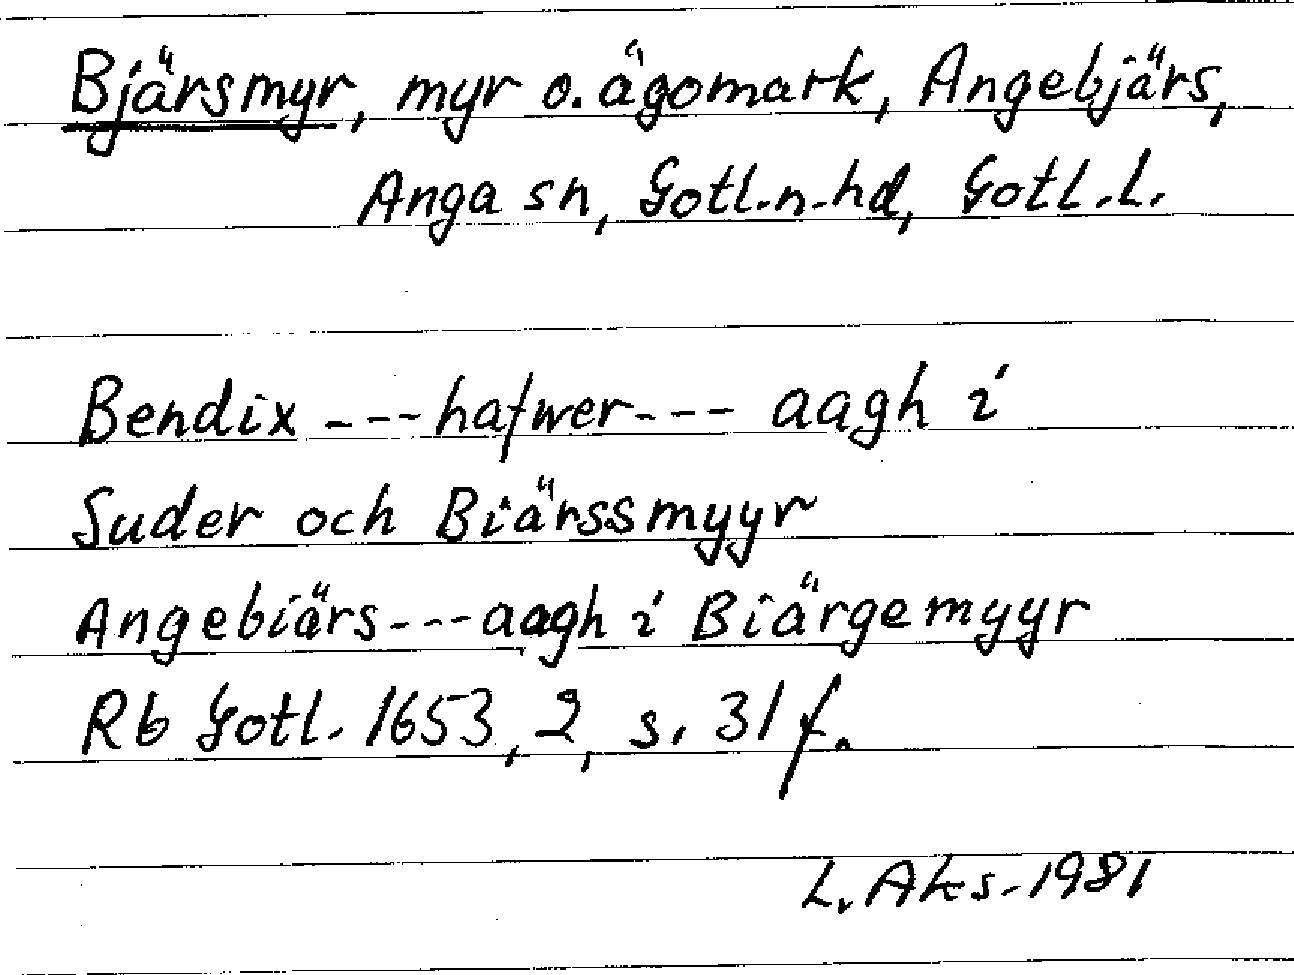 Bjärsmyr, myr o. ägomark, Angebjärs,
Anga sn, Gotl.n.hd, Gotl.l.
Bendix --- hafwer --- aagh i
Suder och Biärssmyyr
Angebiärs --- aagh i Biärgemyyr
Rb Gotl. 1653, 2, s. 31 f.
L. Aks. 1981